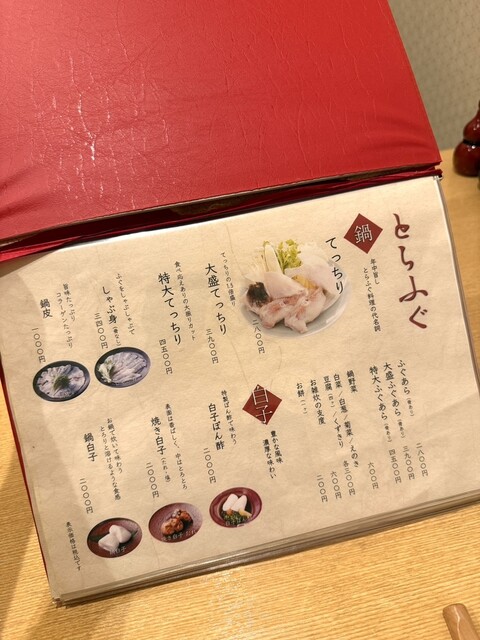 とらふぐ
鍋
年中旨い
とらふぐ料理の代名詞
てっちり
二八〇〇
てっちりの1.5倍盛り
大盛てっちり
三九〇〇
食べ応えありの大振りカット
特大てっちり
四五〇〇
ふぐをしゃぶしゃぶで
しゃぶ身
三四〇〇
旨味たっぷり
コラーゲンたっぷり
鍋皮
一〇〇〇
ふぐあら
二八〇〇
大盛ふぐあら
三九〇〇
特大ふぐあら
四五〇〇
鍋野菜
六〇〇
白菜／白葱／菊菜／えのき
各三〇〇
豆腐／くずきり
お雑炊の支度
六〇〇
お餅
二〇〇
白子
豊かな風味
濃厚な味わい
特製ぽん酢で味わう
白子ぽん酢
二〇〇〇
表面は香ばしく、中はとろとろ
焼き白子（たれ・塩）
二〇〇〇
お鍋で炊いて味わう
とろりと溶けるような食感
鍋白子
二〇〇〇
表示価格は税込です